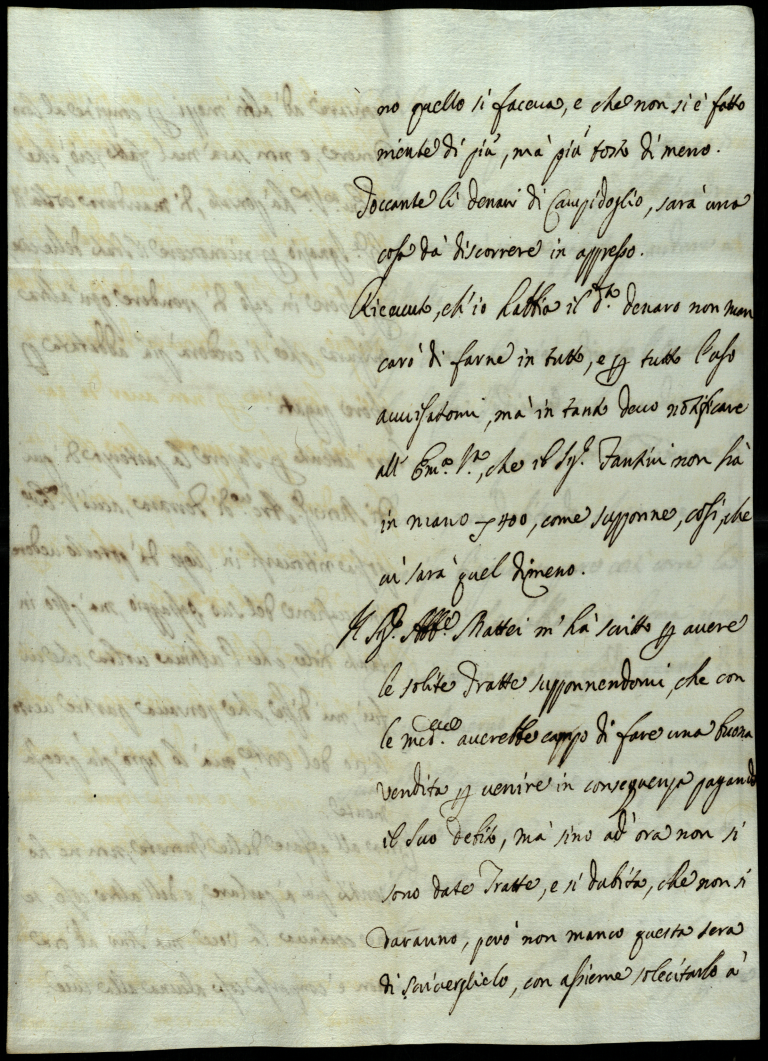 no quello si faceua, e che non si è fatto
niente di più, mà più tosto di meno.
Toccante li denari di Campidoglio, sarà una
cosa dà discorrere in appresso.
Riceuuto, ch'io habbia il d.º denaro non man
carò di farne in tutto, e p tutto l'uso
auuisatomi, mà in tanto deuo notificare
all' Em.ª V.ª, che il Sig.r Fantini non hà
in mano 400, come suppone, così, che
ui sarà quel dimeno.
Il Sig.r Abb.e Mattei m'hà scritto p auere
le solite Tratte supponendomi, che con
le med.e auerebbe campo di fare una buona
vendita p uenire in consequenza pagando
il suo debito, mà sino ad' ora non si
sono date Tratte, e si dubita, che non si
daranno, però non manco questa sera
di scriuerglielo, con assieme solecitarlo à